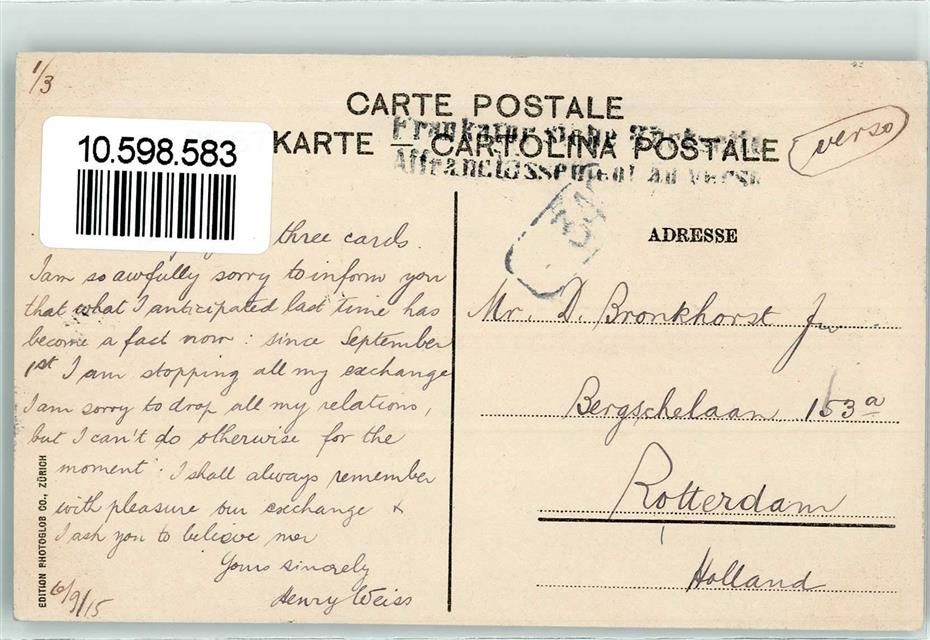 1/3
CARTE POSTALE
KARTE – CARTOLINA POSTALE
Frankatur siehe Rückseite
Affranchissement au verso
verso
10.598.583
ADRESSE
three cards.
I am so awfully sorry to inform you
that what I anticipated last time has
become a fact now: since September
1st I am stopping all my exchange
I am sorry to drop all my relations,
but I can't do otherwise for the
moment. I shall always remember
with pleasure our exchange &
I ask you to believe me
Yours sincerely
Henry Weiss
6/9/15
EDITION PHOTOGLOB CO., ZÜRICH
Mr. D. Bronkhorst Jr.
Bergschelaan 153a
Rotterdam
Holland